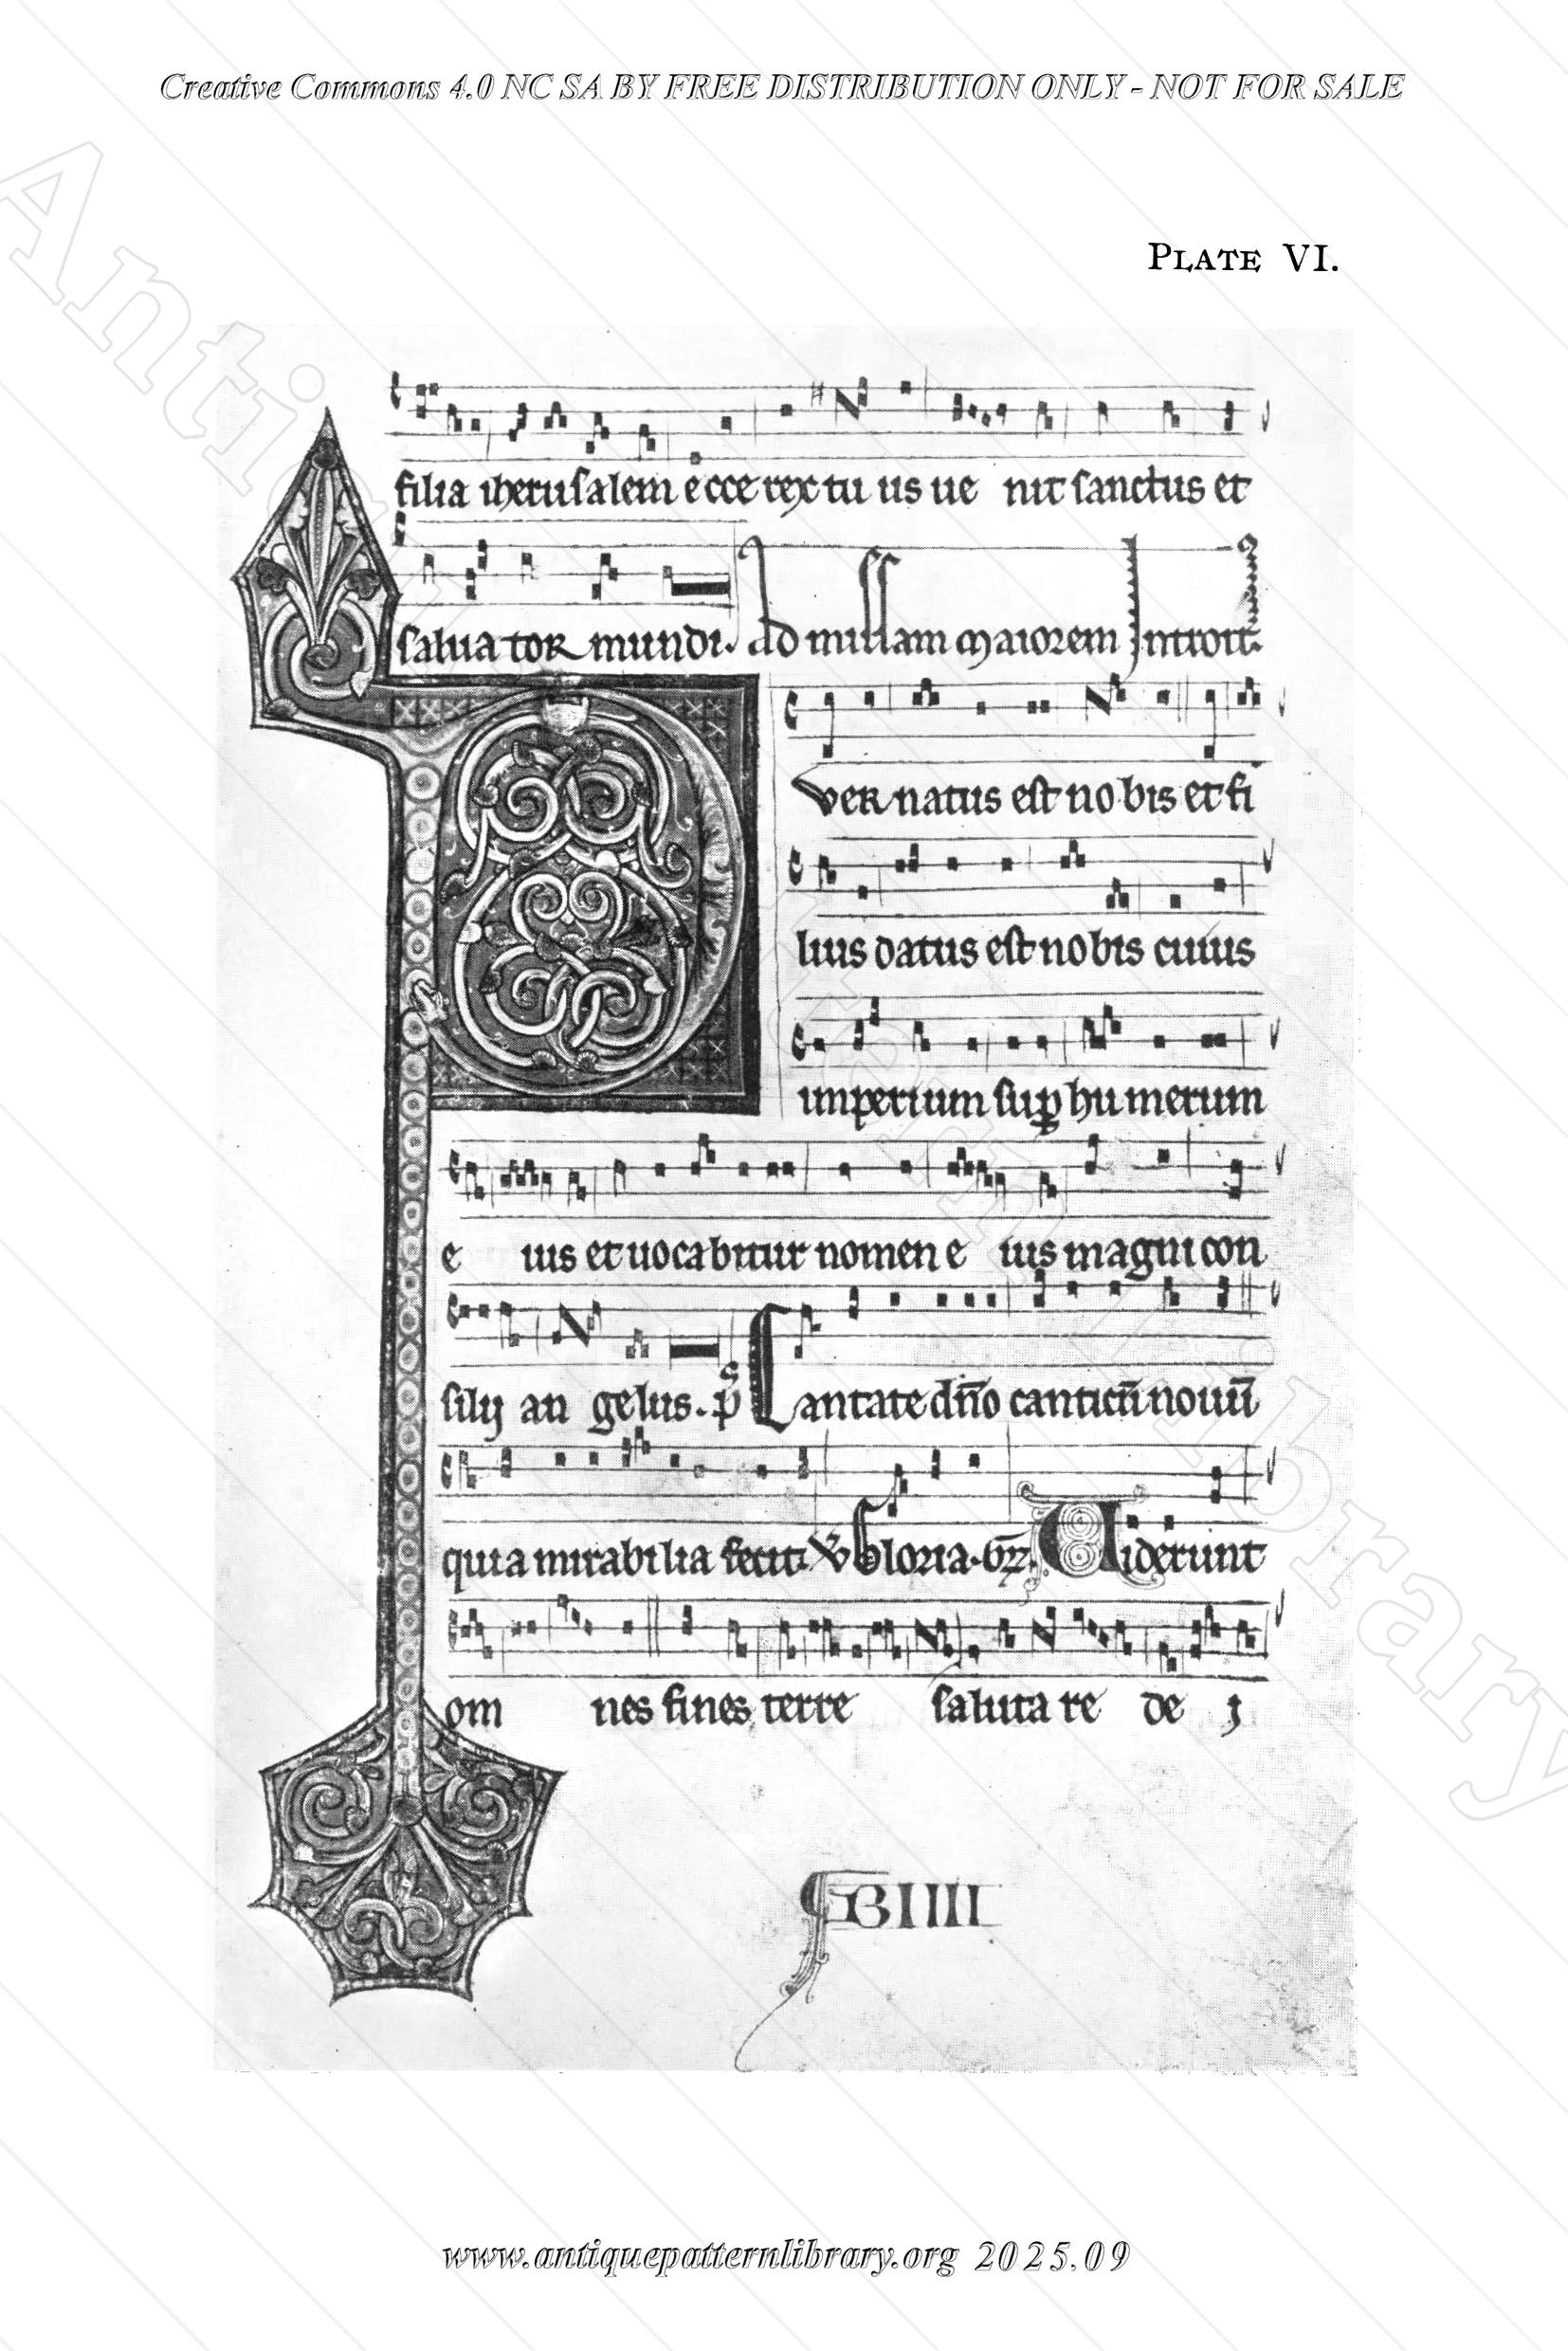 Creative Commons 4.0 NC SA BY FREE DISTRIBUTION ONLY - NOT FOR SALE
PLATE VI.
filia iherusalem ecce rex tu us ue nit sanctus et
salua tor mundi. Ad missam maiorem Introit.
P ver natus est no bis et fi
lius datus est nobis cuius
imperium sup hu merum
e ius et uocabitur nomen e ius magni con
silij an gelus. p̄s Cantate dn̄o canticū nouū
quia mirabilia fecit. V Gloria. Gr̄. Uiderunt
om nes fines terre saluta re de j
www.antiquepatternlibrary.org 2025.09
Antique Pattern Library